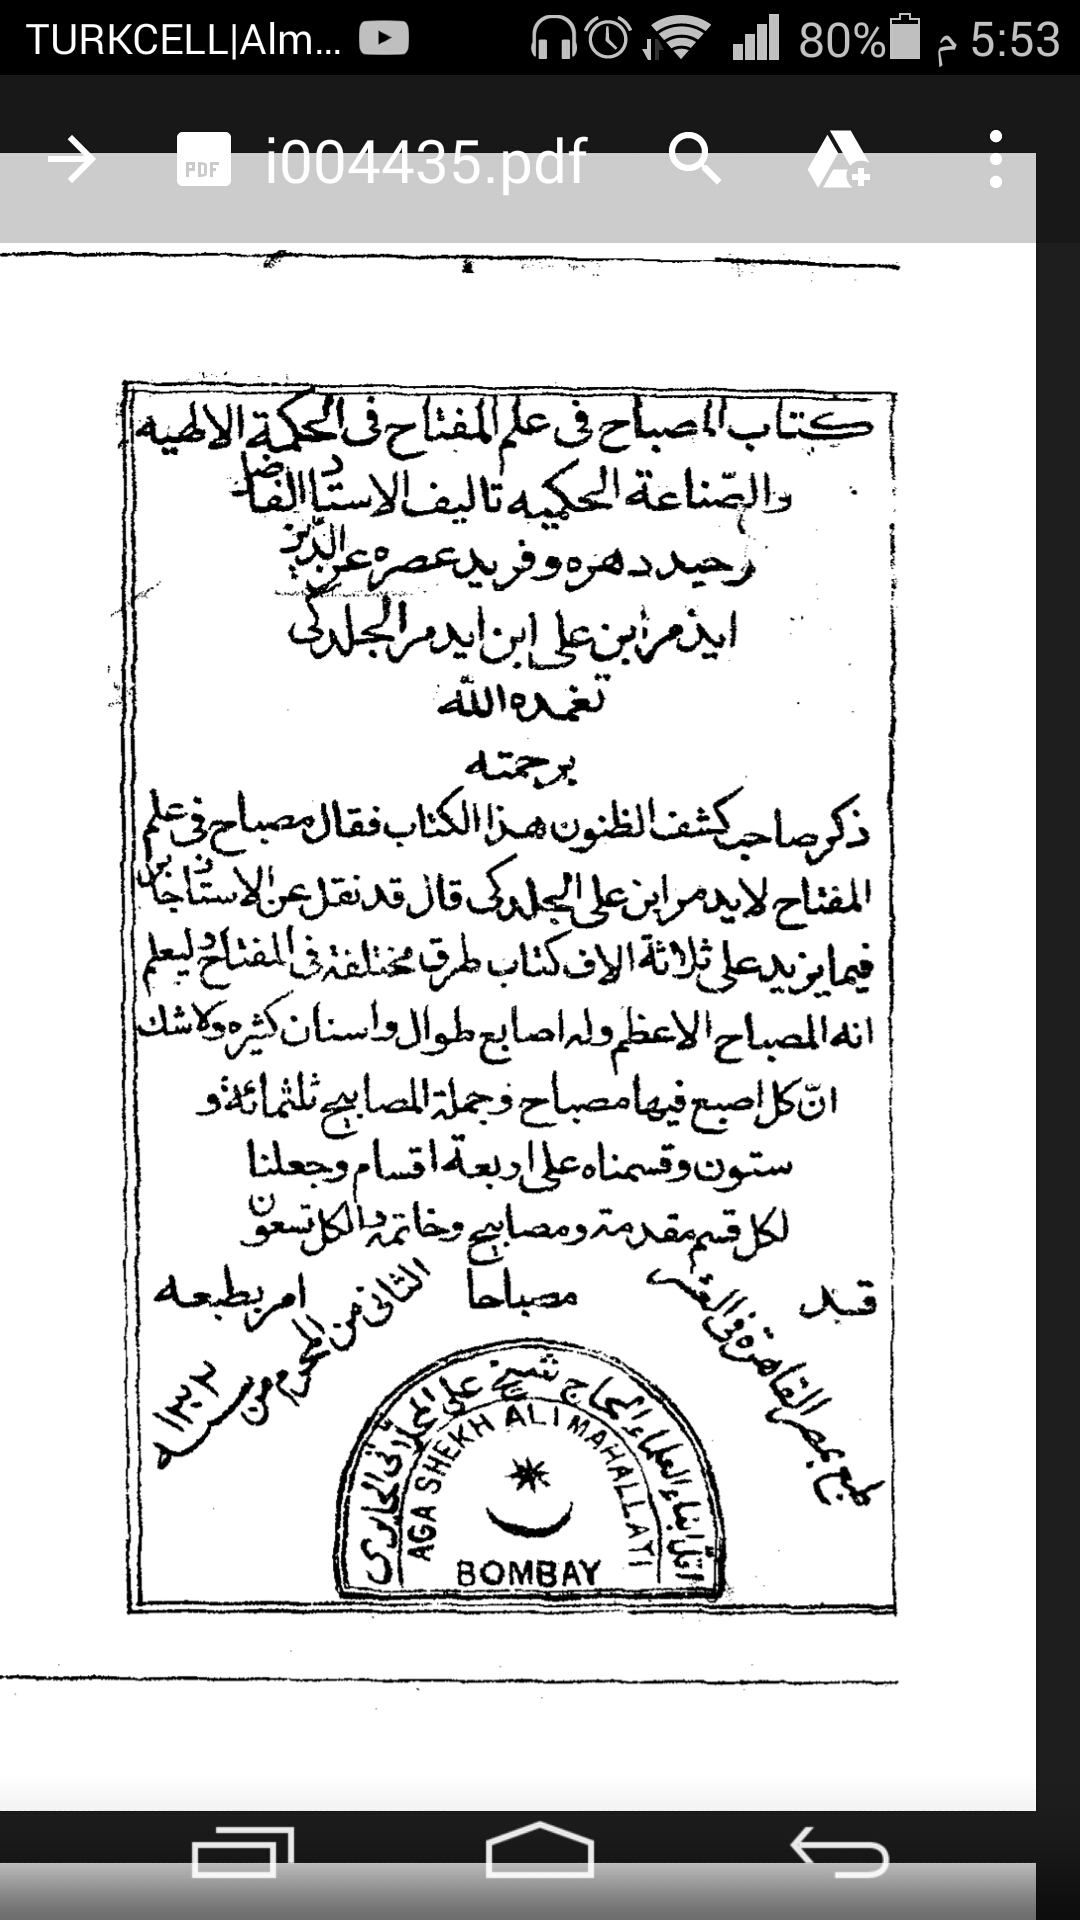 TURKCELL|Alm... 80% م 5:53
PDF i004435.pdf
كتاب المصباح فى علم المفتاح فى الحكمة الالهيه
والصّناعة الحكميه تاليف الاستاد الفاضل
وحيد دهره وفريد عصره عز الدّين
ايدمر ابن على ابن ايدمر الجلدكى
تغمده اللّه
برحمته
ذكر صاحب كشف الظنون هذا الكتاب فقال مصباح فى علم
المفتاح لايدمر ابن على الجلدكى قال قد نقل عن الاستاذ جابر
فيما يزيد على ثلاثة الاف كتاب طرق مختلفة فى المفتاح وليعلم
انه المصباح الاعظم وله اصابع طوال واسنان كثيره ولاشك
انّ كل اصبع فيها مصباح وجملة المصابيح ثلثمائة و
ستون وقسمناه على اربعة اقسام وجعلنا
لكل قسم مقدمة ومصابيح وخاتمة والكل تسعون
قد مصباحا امر بطبعه
طبع بمصر القاهرة فى العشر
الثانى من المحرم من سنه ١٣٠٢
اقلّ ابناء العلماء الحاج شيخ على المحلّاتى الحايرى
AGA SHEKH ALI MAHALLATI
BOMBAY